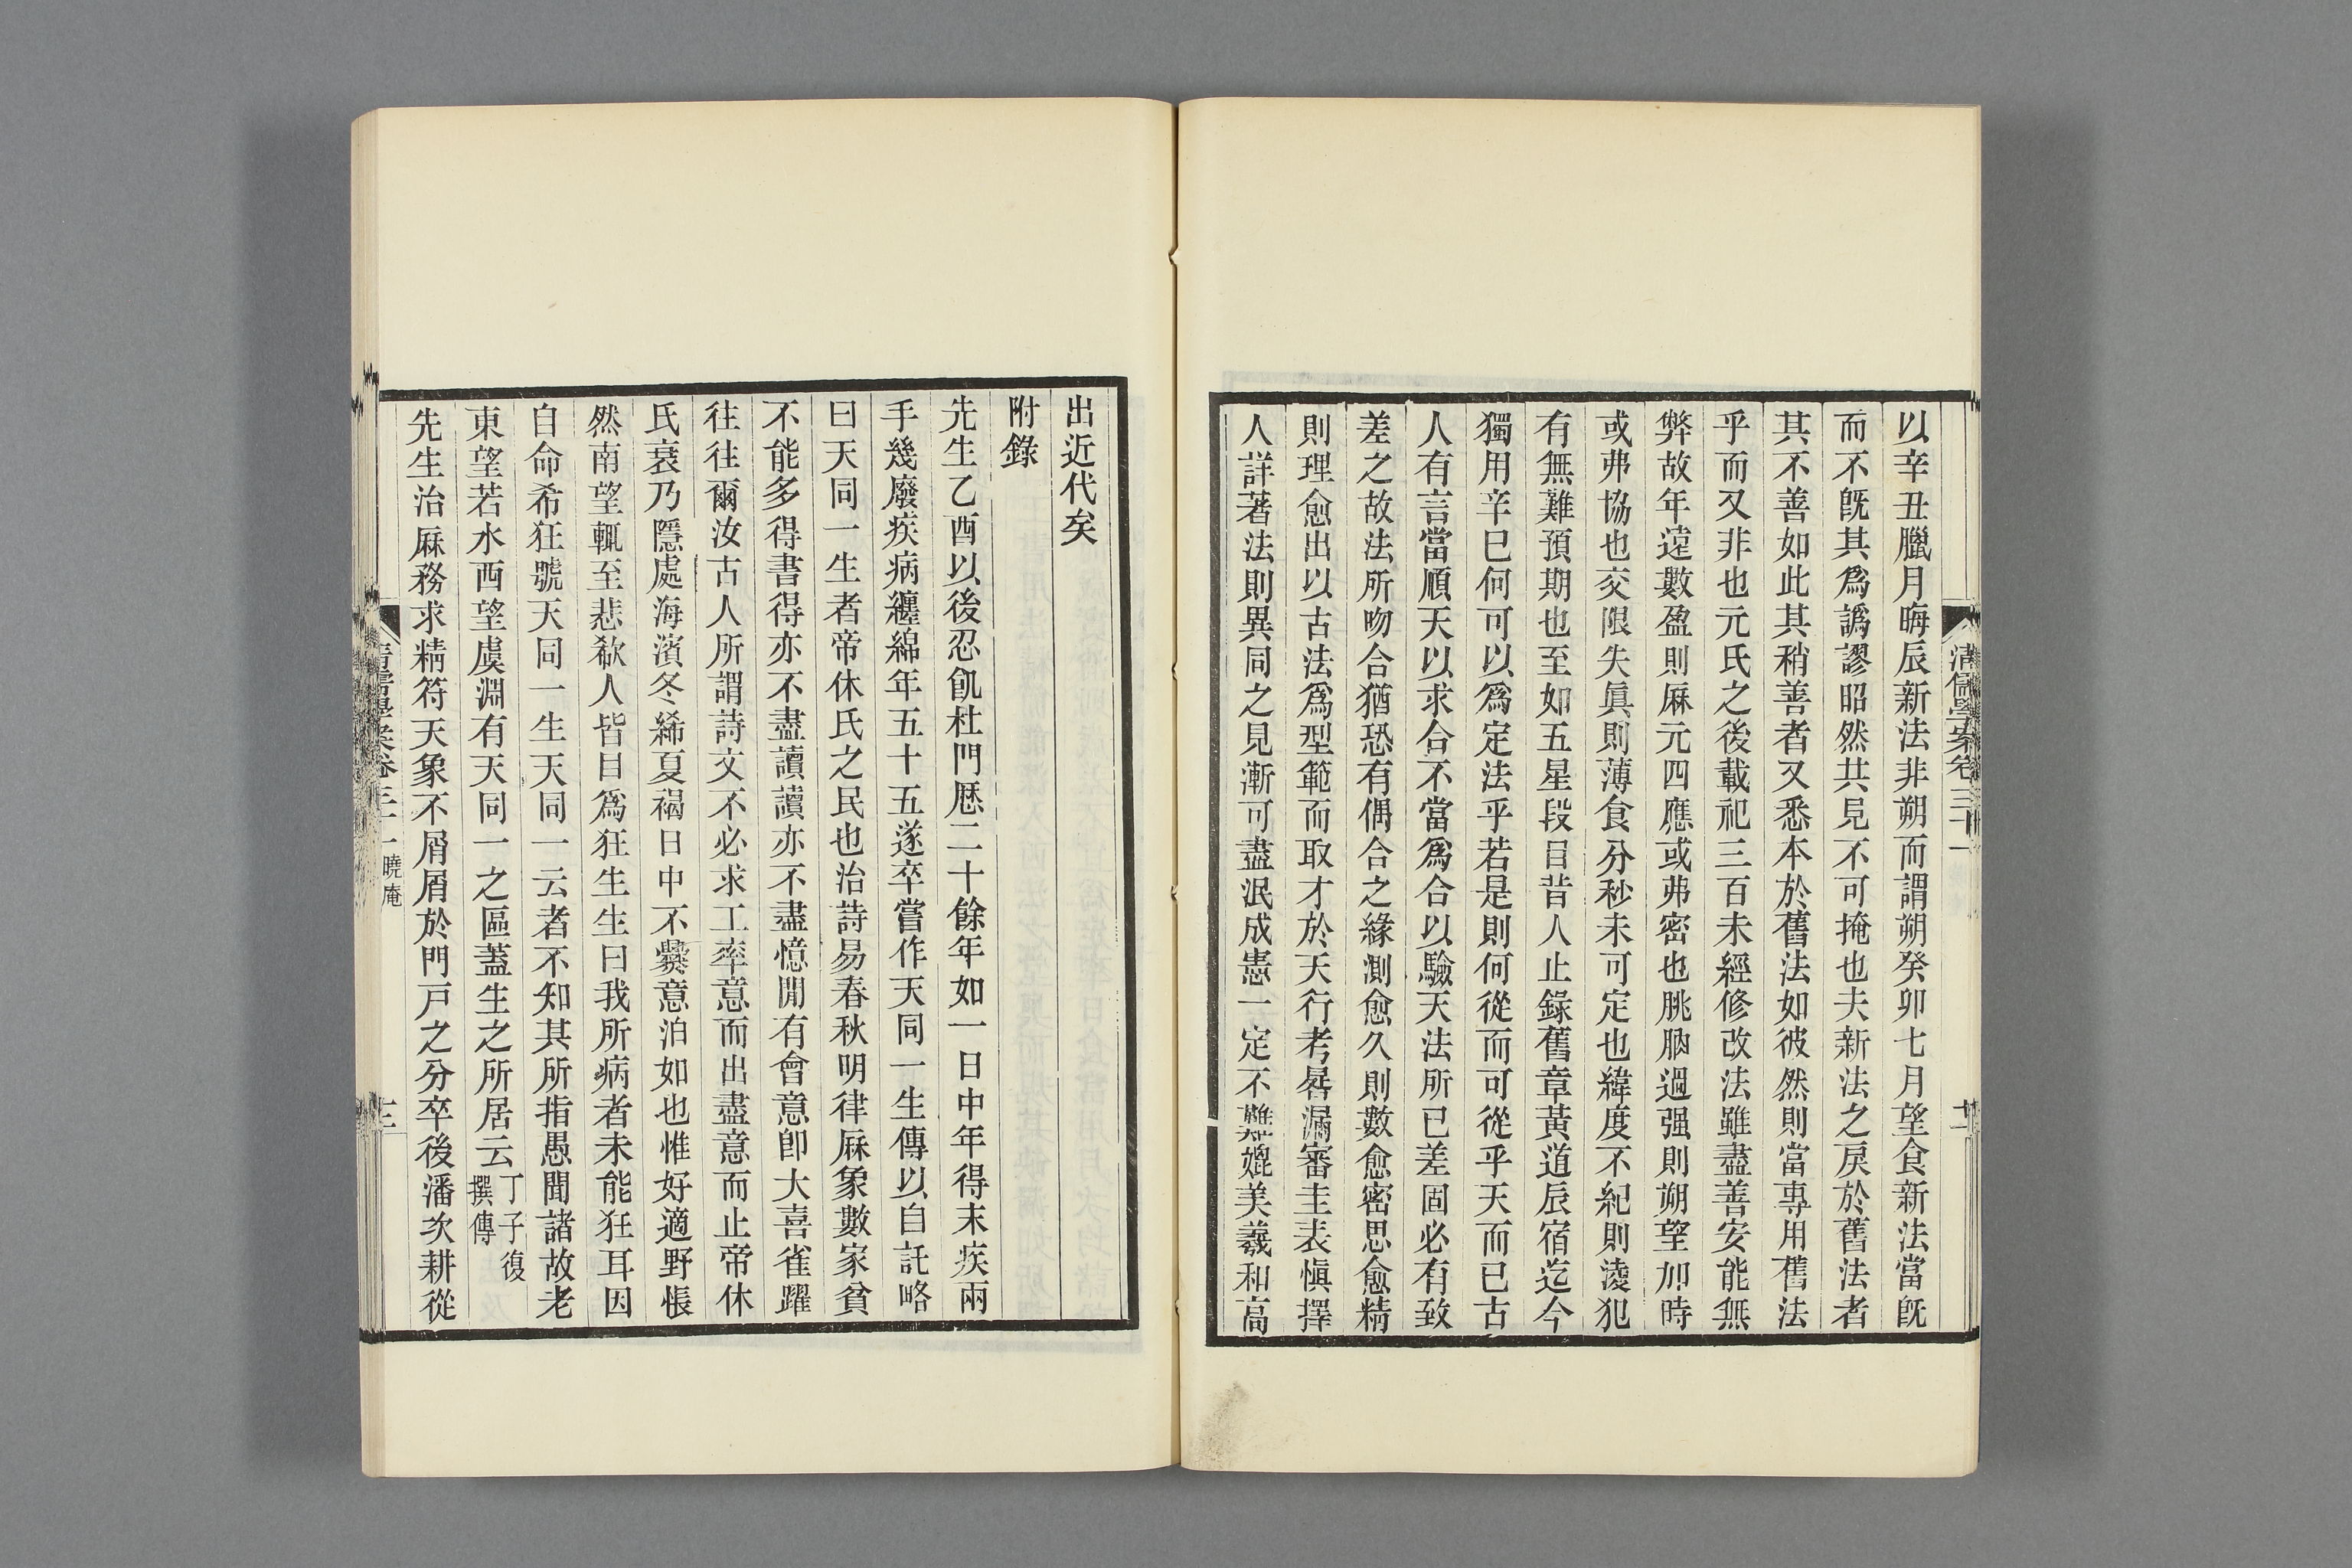 以辛丑臘月晦辰新法非朔而謂朔癸卯七月望食新法當旣
而不旣其爲譌謬昭然共見不可掩也夫新法之戾於舊法者
其不善如此其稍善者又悉本於舊法如彼然則當專用舊法
乎而又非也元氏之後載祀三百未經修改法雖盡善安能無
弊故年遠數盈則厤元四應或弗密也朓朒過强則朔望加時
或弗協也交限失眞則薄食分秒未可定也緯度不紀則淩犯
有無難預期也至如五星段目昔人止錄舊章黃道辰宿迄今
獨用辛巳何可以爲定法乎若是則何從而可從乎天而已古
人有言當順天以求合不當爲合以驗天法所已差固必有致
差之故法所吻合猶恐有偶合之緣測愈久則數愈密思愈精
則理愈出以古法爲型範而取才於天行考晷漏審圭表愼擇
人詳著法則異同之見漸可盡泯成憲一定不難媲美羲和高
清儒學案卷三十一
十二
出近代矣
附錄
先生乙酉以後忍飢杜門厯二十餘年如一日中年得末疾兩
手幾廢疾病纏綿年五十五遂卒嘗作天同一生傳以自託略
曰天同一生者帝休氏之民也治詩易春秋明律厤象數家貧
不能多得書得亦不盡讀讀亦不盡憶閒有會意卽大喜雀躍
往往爾汝古人所謂詩文不必求工率意而出盡意而止帝休
氏衰乃隱處海濱冬絺夏褐日中不爨意泊如也惟好適野悵
然南望輒至悲欷人皆目爲狂生生曰我所病者未能狂耳因
自命希狂號天同一生天同一云者不知其所指愚聞諸故老
東望若水西望虞淵有天同一之區蓋生之所居云丁子復撰傳
先生治厤務求精符天象不屑屑於門戸之分卒後潘次耕從
清儒學案卷三十一 曉庵